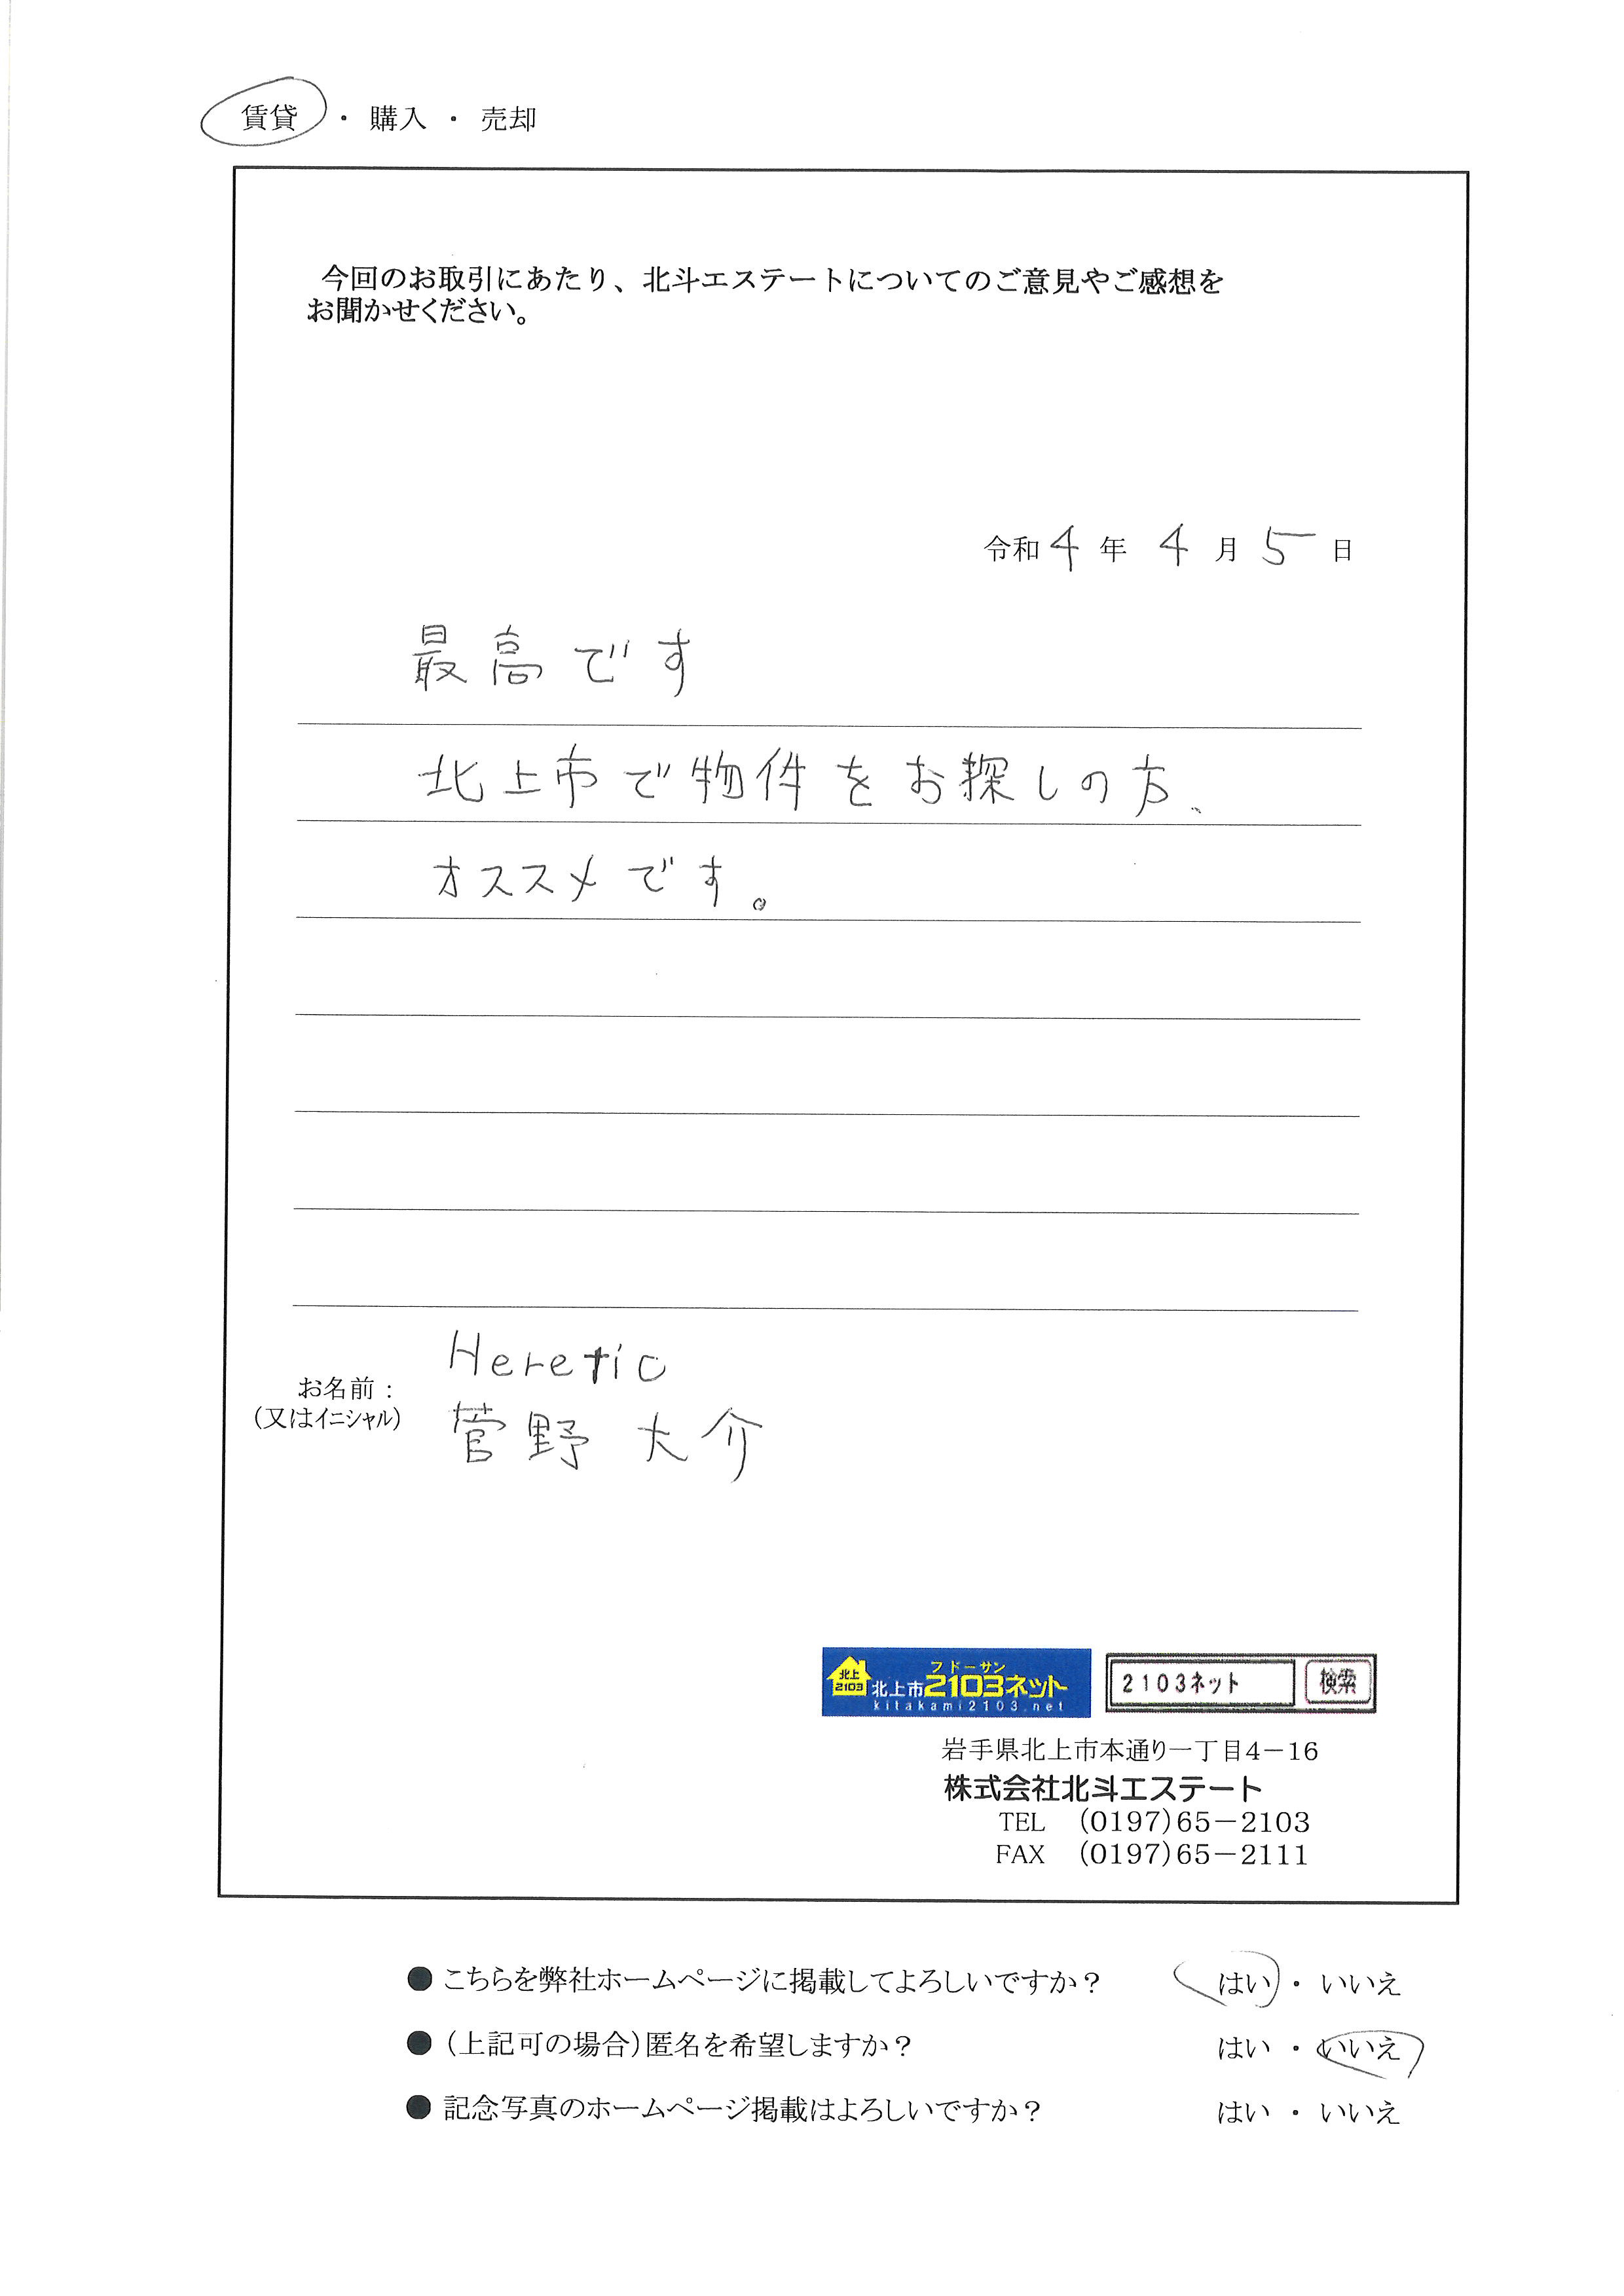 賃貸 ・ 購入 ・ 売却
今回のお取引にあたり、北斗エステートについてのご意見やご感想を
お聞かせください。
令和4年 4月 5日
最高です
北上市で物件をお探しの方、
オススメです。
Heretic
お名前：
(又はイニシャル)
菅野 大介
北上
2103
フドーサン
北上市2103ネット
kitakami2103.net
2103ネット 検索
岩手県北上市本通り一丁目4－16
株式会社北斗エステート
TEL (0197)65－2103
FAX (0197)65－2111
● こちらを弊社ホームページに掲載してよろしいですか？ はい ・ いいえ
● (上記可の場合)匿名を希望しますか？ はい ・ いいえ
● 記念写真のホームページ掲載はよろしいですか？ はい ・ いいえ